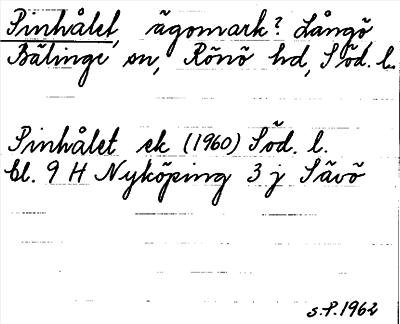 Pinhålet, ägomark? Långö
Bälinge sn, Rönö hd, Söd. l.
Pinhålet ek (1960) Söd. l.
bl. 9 H Nyköping 3 j Sävö
S.P. 1962